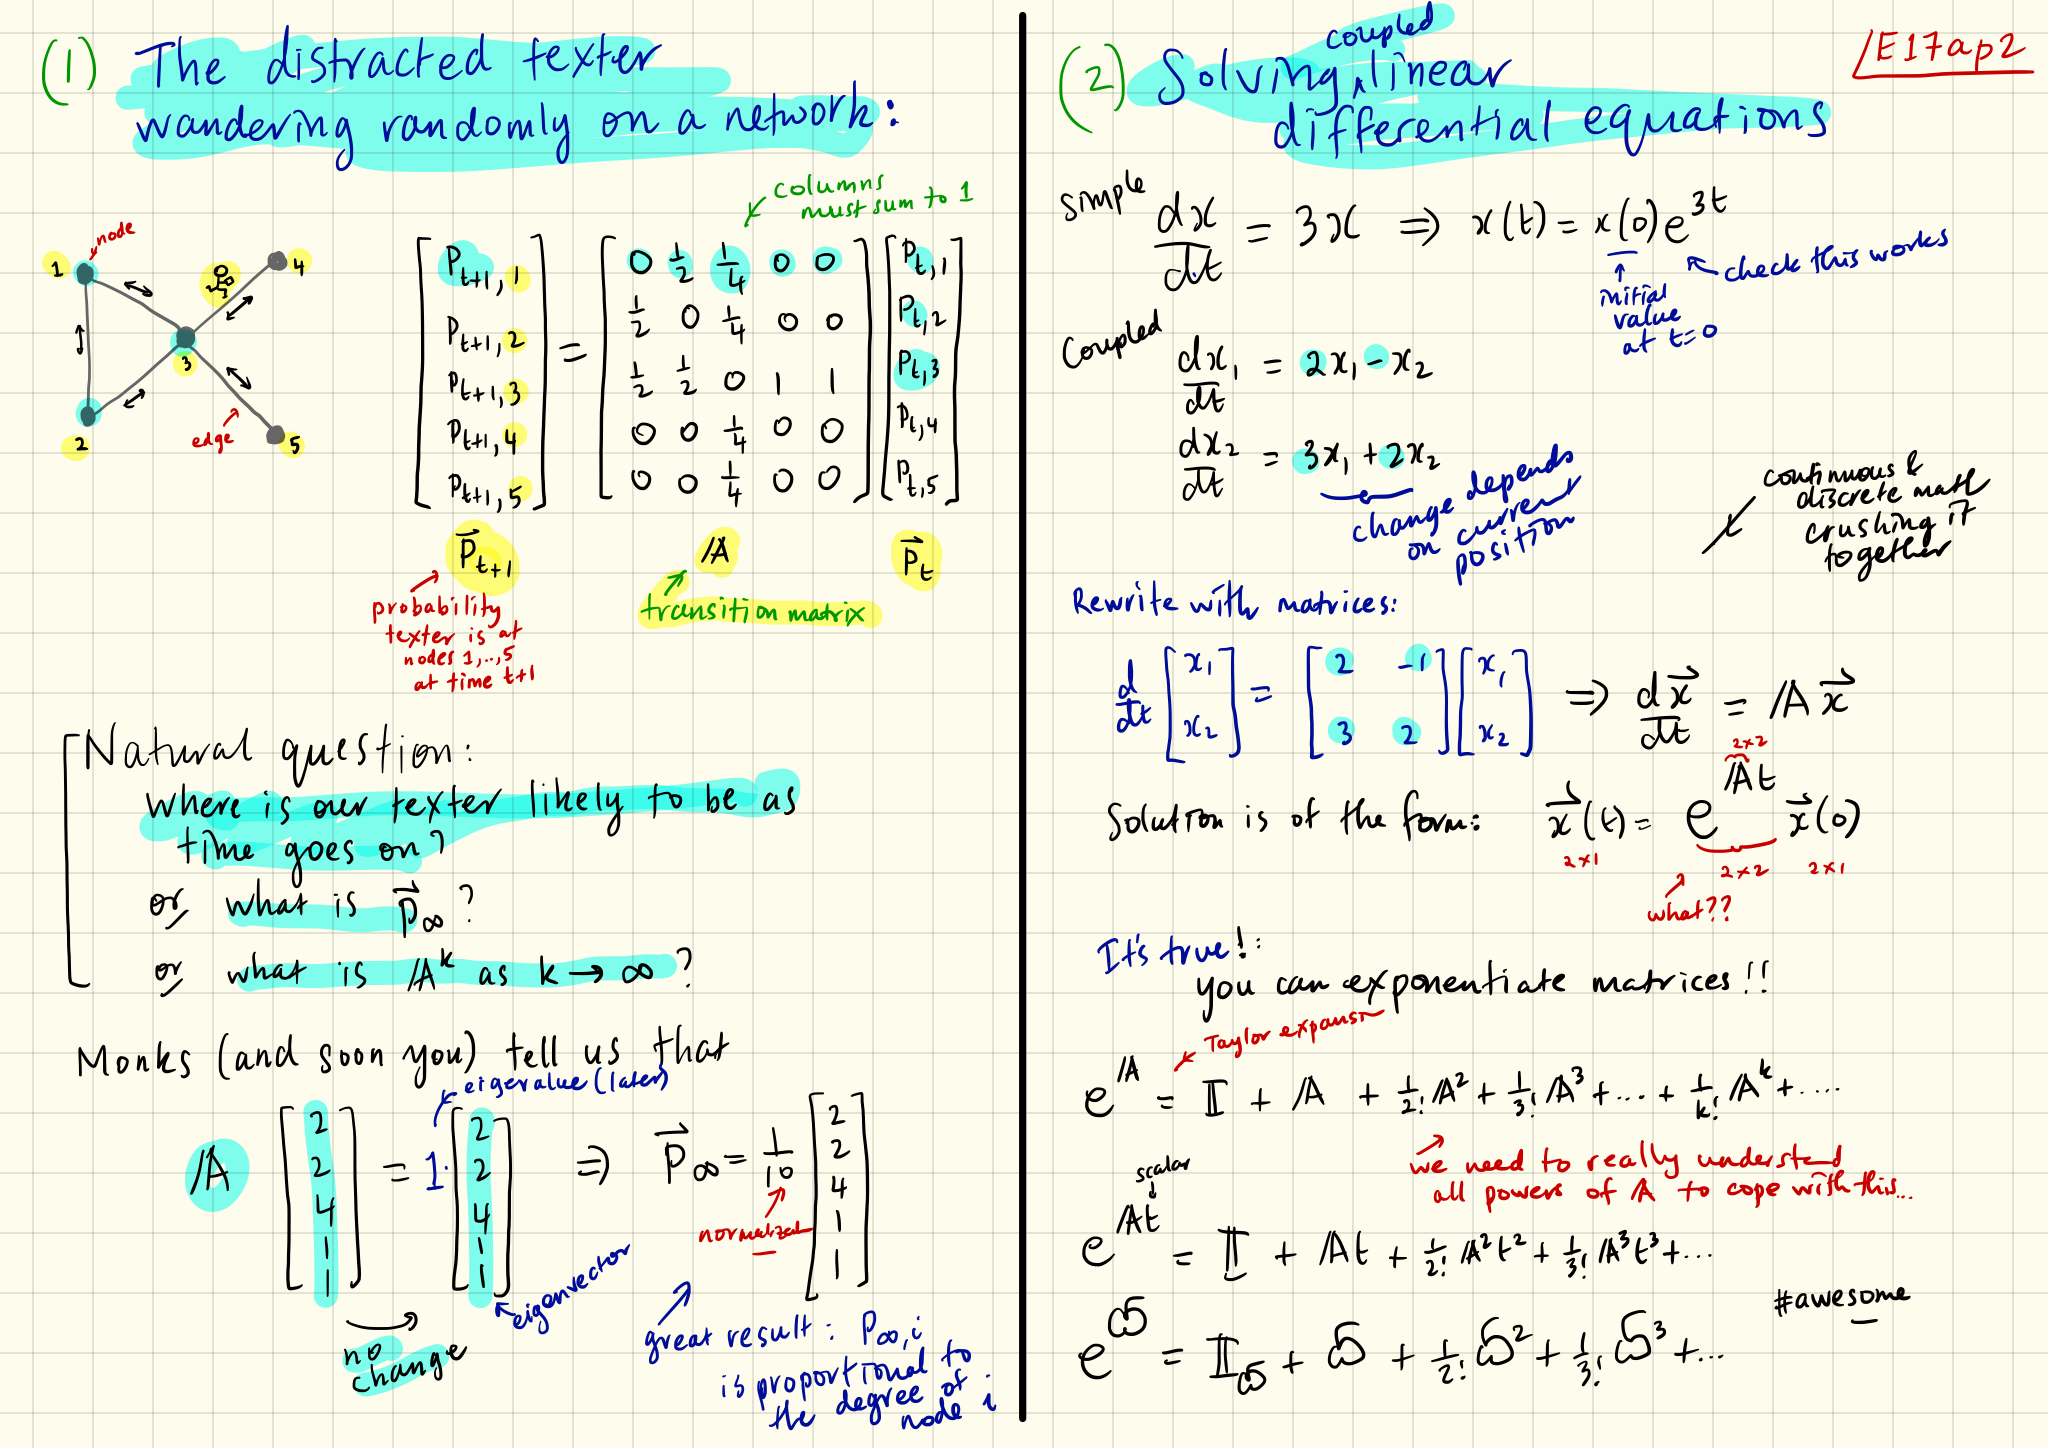 (1) The distracted texter
wandering randomly on a network:
node
1
2
3
4
5
edge
columns
must sum to 1
[P_{t+1,1}] = [0 1/2 1/4 0 0] [P_{t,1}]
[P_{t+1,2}] [1/2 0 1/4 0 0] [P_{t,2}]
[P_{t+1,3}] [1/2 1/2 0 1 1] [P_{t,3}]
[P_{t+1,4}] [0 0 1/4 0 0] [P_{t,4}]
[P_{t+1,5}] [0 0 1/4 0 0] [P_{t,5}]
P⃗_{t+1} 𝔸 P⃗_t
transition matrix
probability
texter is at
nodes 1,..,5
at time t+1
Natural question:
where is our texter likely to be as
time goes on?
or what is P⃗_∞?
or what is 𝔸^k as k → ∞?
Monks (and soon you) tell us that
eigenvalue (later)
𝔸 [2 2 4 1 1] = 1·[2 2 4 1 1] ⇒ P⃗_∞ = 1/10 [2 2 4 1 1]
normalized
eigenvector
no
change
great result: P_{∞,i}
is proportional to
the degree of
node i
/E17ap2
(2) Solving coupled linear
differential equations
Simple dx/dt = 3x ⇒ x(t) = x(0)e^{3t}
initial
value
at t=0
check this works
Coupled
dx_1/dt = 2x_1 - x_2
dx_2/dt = 3x_1 + 2x_2
change depends
on current
position
continuous &
discrete math
crushing it
together
Rewrite with matrices:
d/dt [x_1] = [2 -1] [x_1] ⇒ dx⃗/dt = 𝔸x⃗
[x_2] [3 2] [x_2]
2×2
Solution is of the form: x⃗(t) = e^{𝔸t} x⃗(0)
2×1 2×2 2×1
what??
It's true!:
you can exponentiate matrices!!
Taylor expansion
e^𝔸 = 𝕀 + 𝔸 + 1/2! 𝔸² + 1/3! 𝔸³ + ... + 1/k! 𝔸^k + ....
we need to really understand
all powers of 𝔸 to cope with this...
scalar
e^{𝔸t} = 𝕀 + 𝔸t + 1/2! 𝔸²t² + 1/3! 𝔸³t³ + ...
#awesome